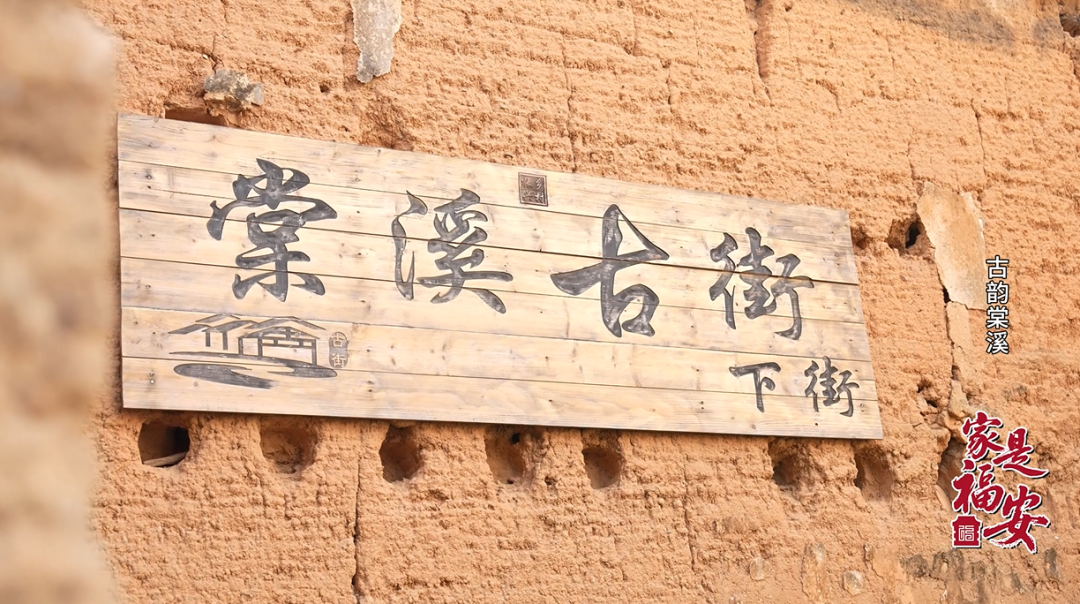 棠溪古街
下街
古街
古韵棠溪
家是
福安